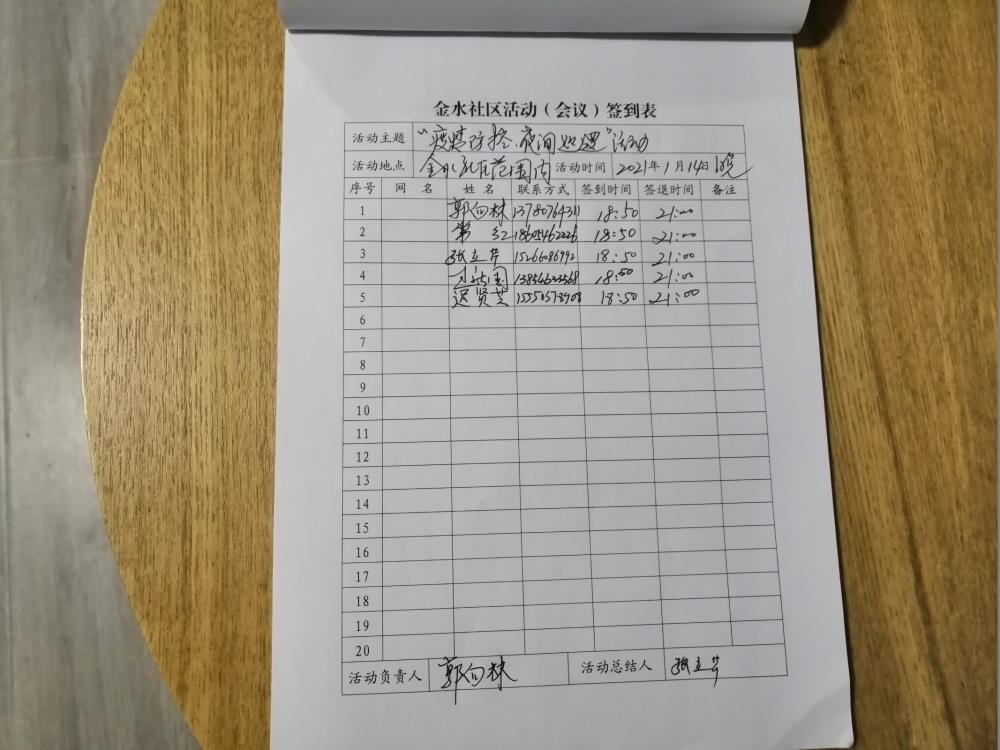 金水社区活动（会议）签到表
活动主题 “疫情防控.夜间巡逻”活动
活动地点 金水社区范围内 活动时间 2021年1月14日晚
序号 网 名 姓 名 联系方式 签到时间 签退时间 备注
1 郭向林 18:50 21:00
2 18605462226 18:50 21:00
3 张立芹 15266086992 18:50 21:00
4 18:50 21:00
5 迟贤芝 18:50 21:00
6
7
8
9
10
11
12
13
14
15
16
17
18
19
20
活动负责人 郭向林 活动总结人 张立芹